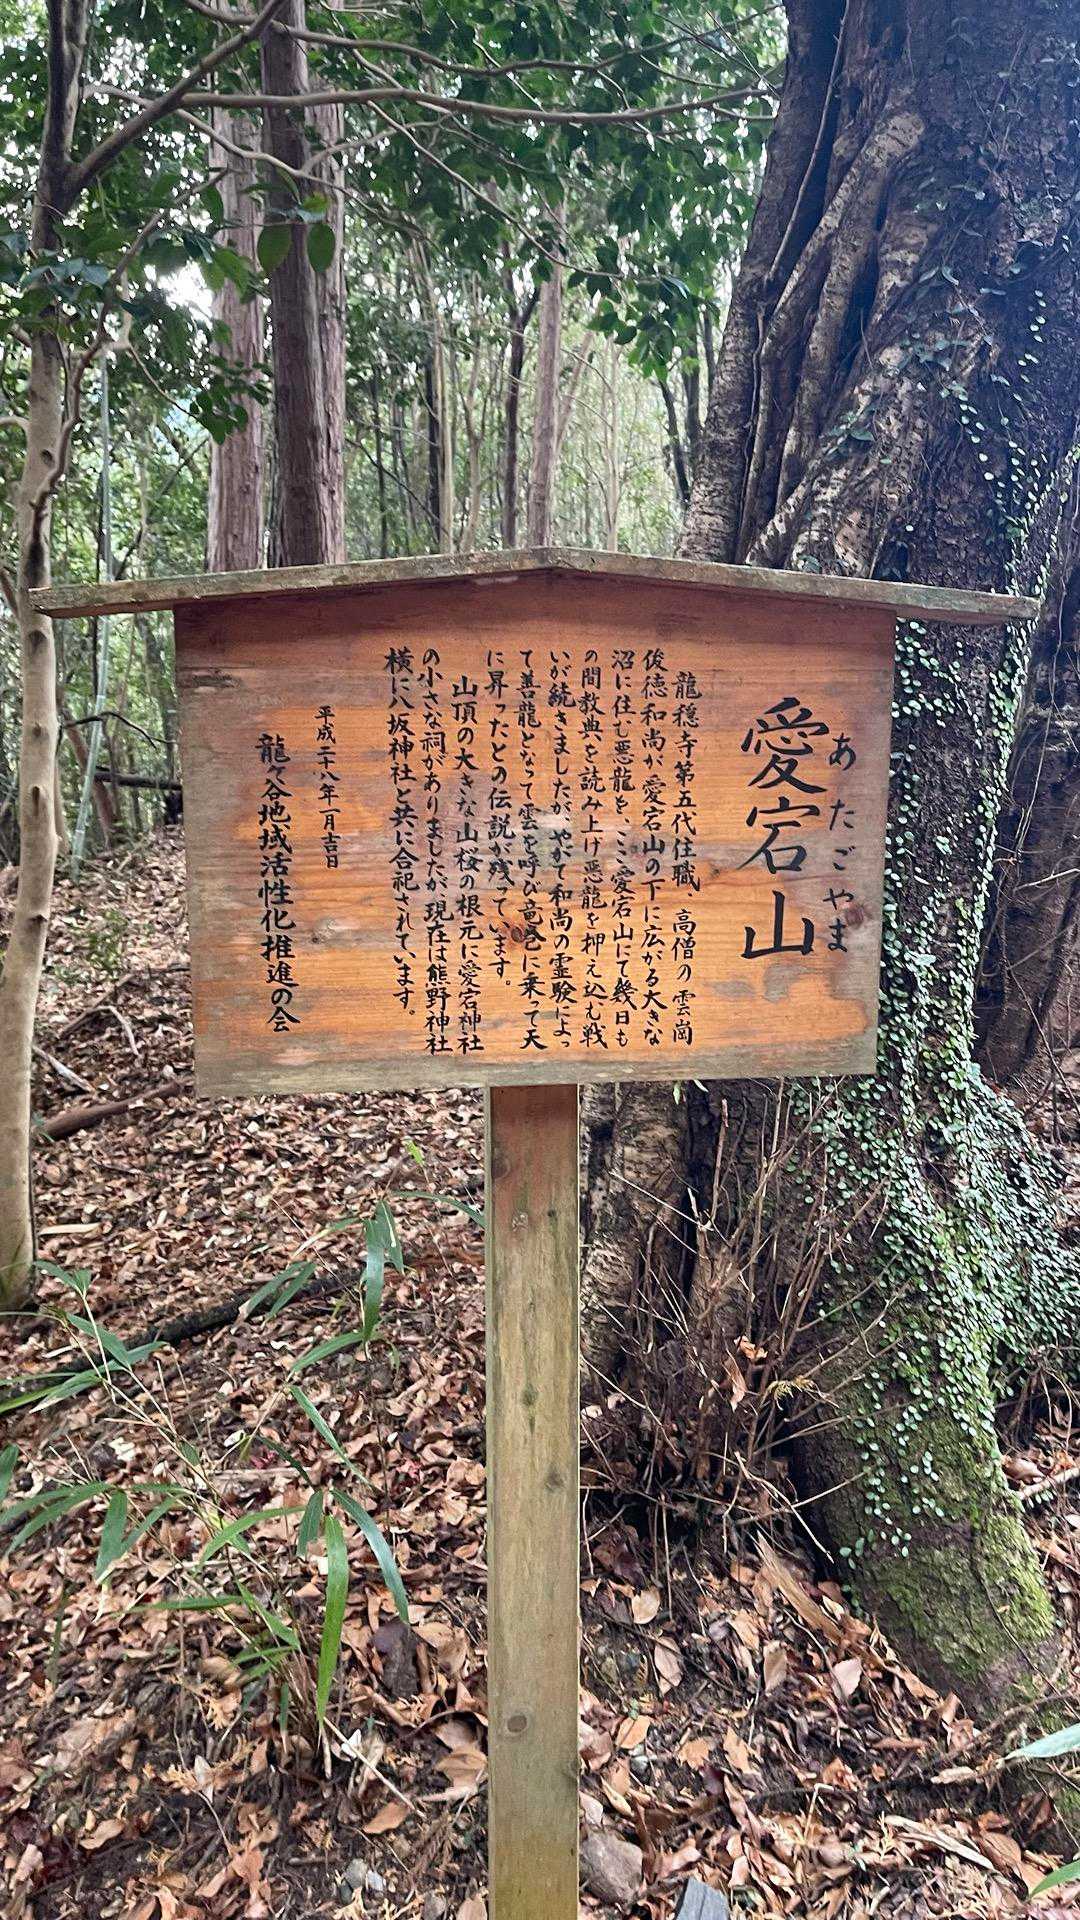 あたごやま
愛宕山
龍穏寺第五代住職、高僧の雲崗
俊徳和尚が愛宕山の下に広がる大きな
沼に住む悪龍を、ここ愛宕山にて幾日も
の間教典を読み上げ悪龍を押え込む戦
いが続きましたが、やがて和尚の霊験によっ
て善龍となって雲を呼び竜巻に乗って天
に昇ったとの伝説が残っています。
山頂の大きな山桜の根元に愛宕神社
の小さな祠がありましたが現在は熊野神社
横に八坂神社と共に合祀されています。
平成二十八年一月吉日
龍ヶ谷地域活性化推進の会